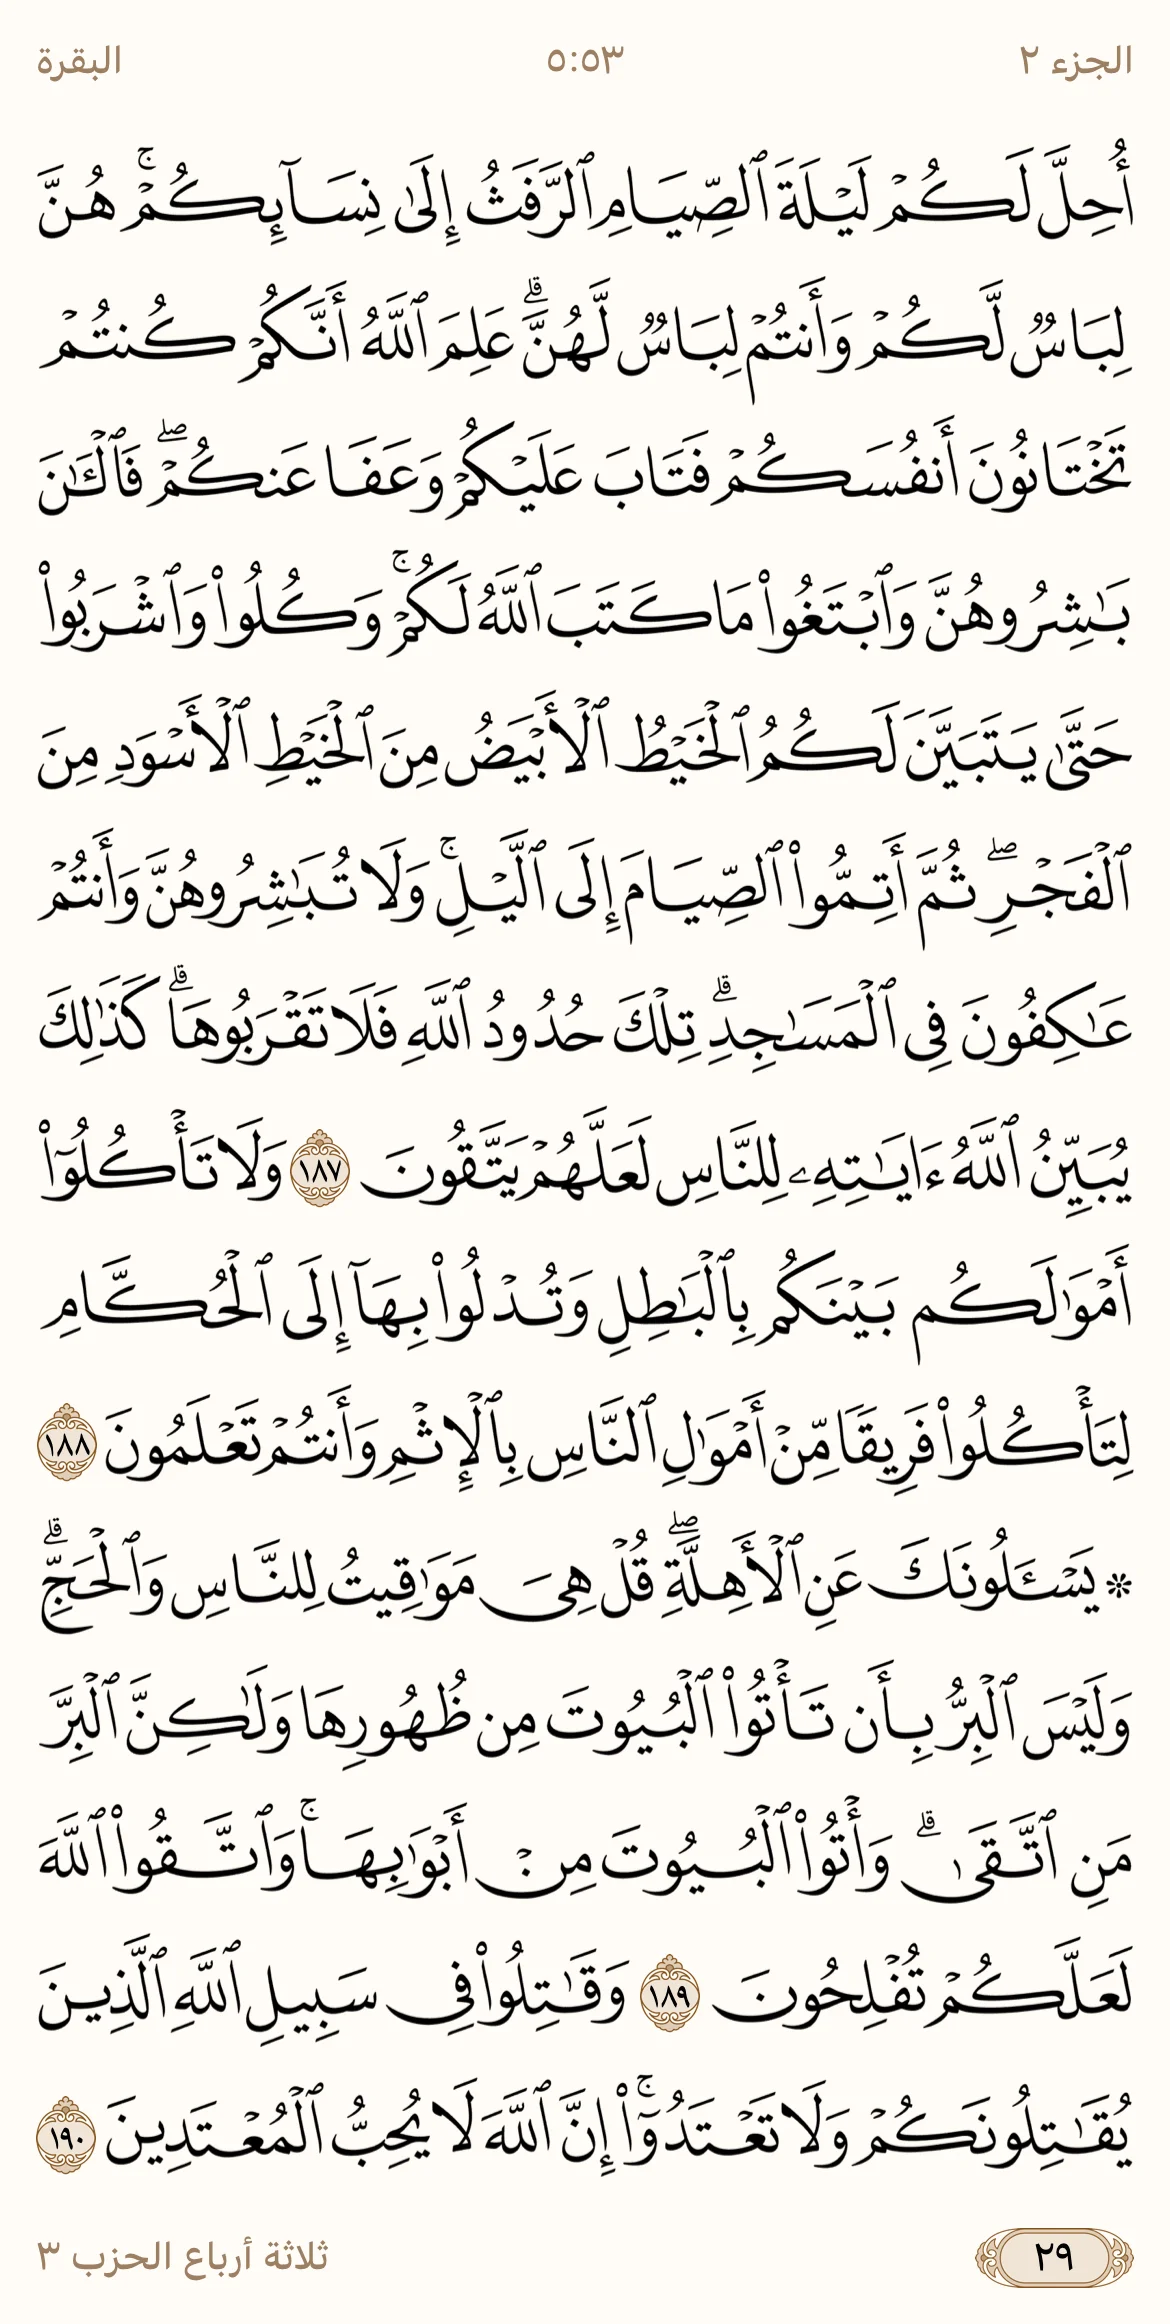 الجزء ٢ ٥:٥٣ البقرة
أُحِلَّ لَكُمۡ لَيۡلَةَ ٱلصِّيَامِ ٱلرَّفَثُ إِلَىٰ نِسَآئِكُمۡۚ هُنَّ
لِبَاسٞ لَّكُمۡ وَأَنتُمۡ لِبَاسٞ لَّهُنَّۗ عَلِمَ ٱللَّهُ أَنَّكُمۡ كُنتُمۡ
تَخۡتَانُونَ أَنفُسَكُمۡ فَتَابَ عَلَيۡكُمۡ وَعَفَا عَنكُمۡۖ فَٱلۡـَٰٔنَ
بَٰشِرُوهُنَّ وَٱبۡتَغُواْ مَا كَتَبَ ٱللَّهُ لَكُمۡۚ وَكُلُواْ وَٱشۡرَبُواْ
حَتَّىٰ يَتَبَيَّنَ لَكُمُ ٱلۡخَيۡطُ ٱلۡأَبۡيَضُ مِنَ ٱلۡخَيۡطِ ٱلۡأَسۡوَدِ مِنَ
ٱلۡفَجۡرِۖ ثُمَّ أَتِمُّواْ ٱلصِّيَامَ إِلَى ٱلَّيۡلِۚ وَلَا تُبَٰشِرُوهُنَّ وَأَنتُمۡ
عَٰكِفُونَ فِي ٱلۡمَسَٰجِدِۗ تِلۡكَ حُدُودُ ٱللَّهِ فَلَا تَقۡرَبُوهَاۗ كَذَٰلِكَ
يُبَيِّنُ ٱللَّهُ ءَايَٰتِهِۦ لِلنَّاسِ لَعَلَّهُمۡ يَتَّقُونَ ١٨٧ وَلَا تَأۡكُلُوٓاْ
أَمۡوَٰلَكُم بَيۡنَكُم بِٱلۡبَٰطِلِ وَتُدۡلُواْ بِهَآ إِلَى ٱلۡحُكَّامِ
لِتَأۡكُلُواْ فَرِيقٗا مِّنۡ أَمۡوَٰلِ ٱلنَّاسِ بِٱلۡإِثۡمِ وَأَنتُمۡ تَعۡلَمُونَ ١٨٨
۞ يَسۡـَٔلُونَكَ عَنِ ٱلۡأَهِلَّةِۖ قُلۡ هِيَ مَوَٰقِيتُ لِلنَّاسِ وَٱلۡحَجِّۗ
وَلَيۡسَ ٱلۡبِرُّ بِأَن تَأۡتُواْ ٱلۡبُيُوتَ مِن ظُهُورِهَا وَلَٰكِنَّ ٱلۡبِرَّ
مَنِ ٱتَّقَىٰۗ وَأۡتُواْ ٱلۡبُيُوتَ مِنۡ أَبۡوَٰبِهَاۚ وَٱتَّقُواْ ٱللَّهَ
لَعَلَّكُمۡ تُفۡلِحُونَ ١٨٩ وَقَٰتِلُواْ فِي سَبِيلِ ٱللَّهِ ٱلَّذِينَ
يُقَٰتِلُونَكُمۡ وَلَا تَعۡتَدُوٓاْۚ إِنَّ ٱللَّهَ لَا يُحِبُّ ٱلۡمُعۡتَدِينَ ١٩٠
٢٩ ثلاثة أرباع الحزب ٣